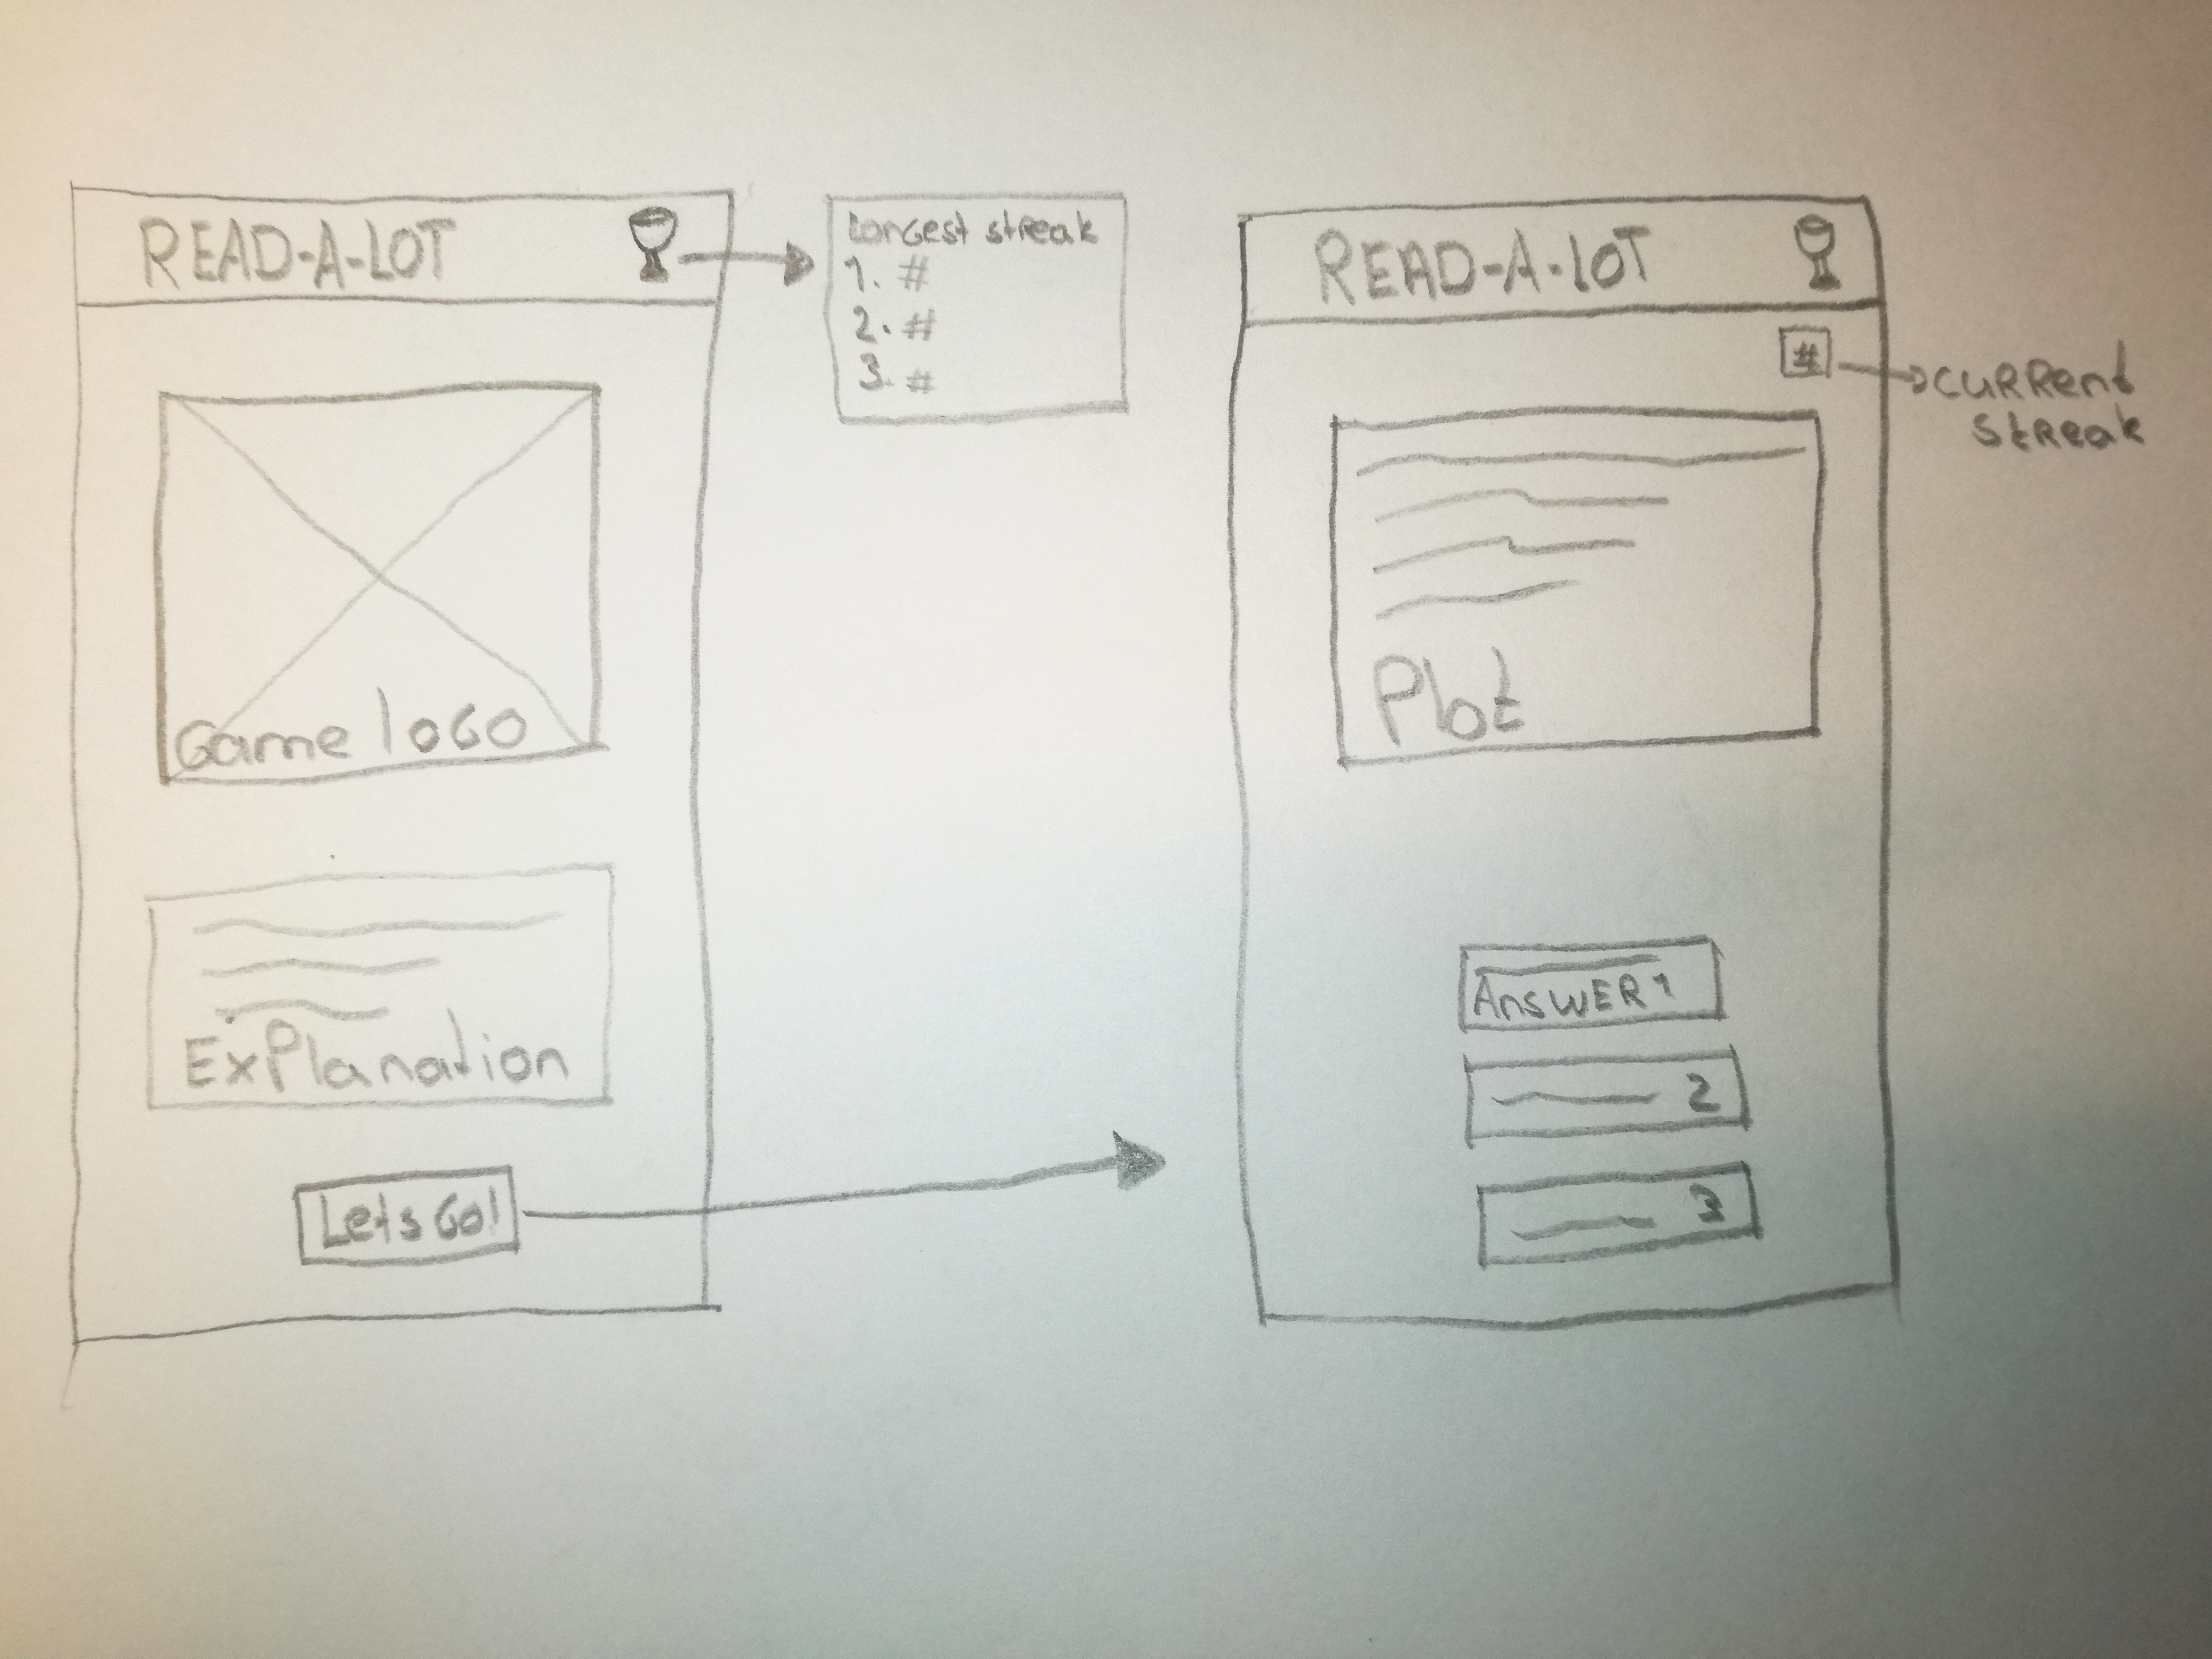 READ-A-LOT
Game logo
Explanation
Lets Go!
Longest streak
1. #
2. #
3. #
READ-A-LOT
#
Current
streak
Plot
Answer 1
2
3